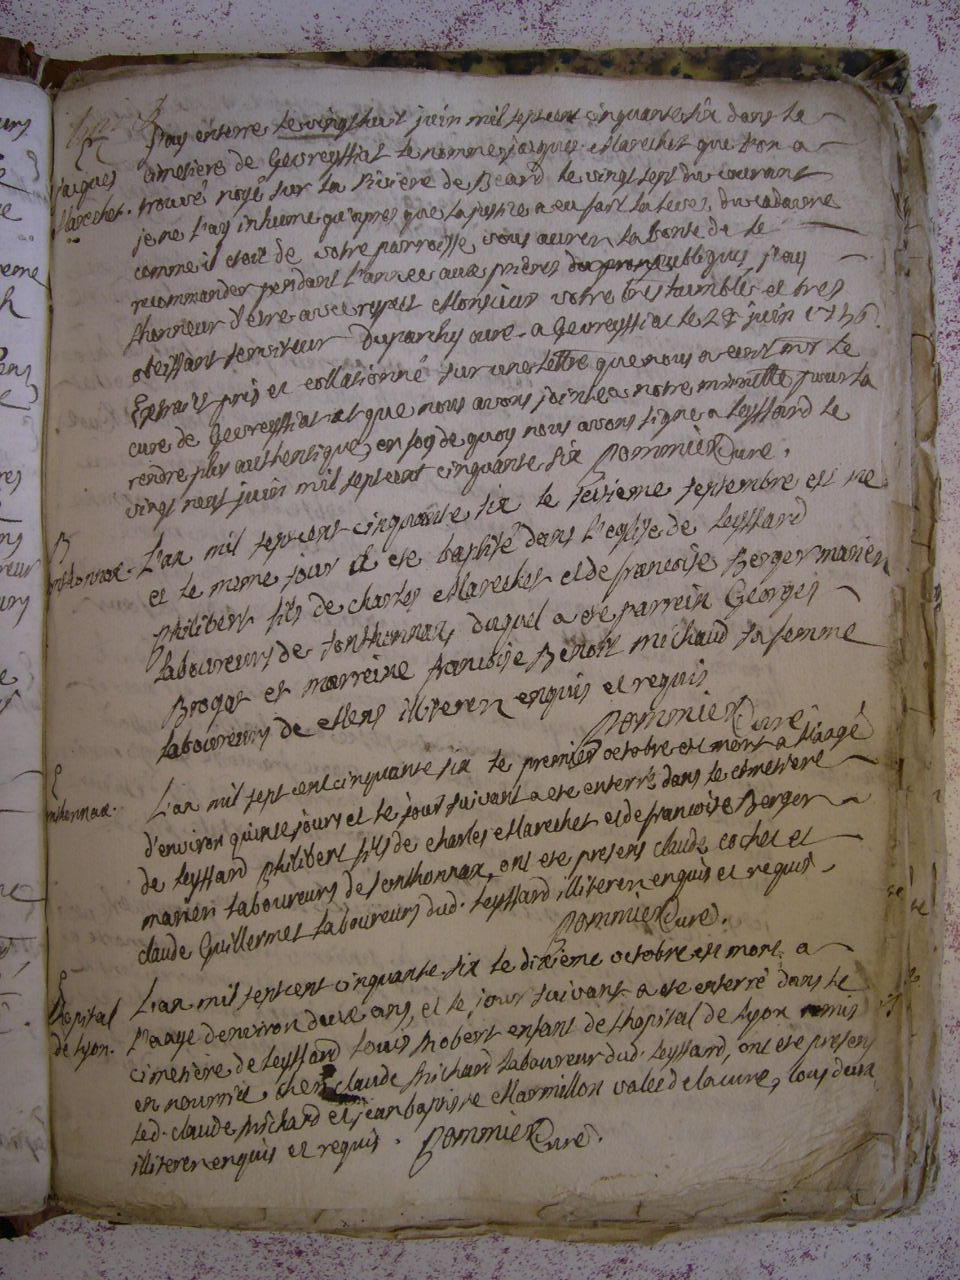 J'ay enterré le vingthuit juin mil sept cent cinquante six dans le
Jaques
Marechet.
cimetiere de Gevreyssiat le nommé jacques Marechet que l'on a
trouvé noyé sur la Riviere de Beard le vingt sept du courant
je ne l'ay inhumé qu'apres que la justice a eu fait la levée du cadavre
comme il etoit de votre parroisse vous aurez la bonté de le
recommander pendant l'année aux prieres publiques j'ay
l'honneur d'etre avec respect Monsieur votre tres humble et tres
obeissant serviteur Duparchy curé. a Gevreyssiat le 28 juin 1756.
Extrait pris et collationné sur une lettre que nous a ecrit mr le
curé de Gevreyssiat et que nous avons jointe a notre minutte pour la
rendre plus authentique, en foy de quoy nous avons signé a Leyssard le
vingt neuf juin mil sept cent cinquante six Pommier Curé.
B
onthonnax.
L'an mil sept cent cinquante six le seizieme septembre est né
et le meme jour a eté baptisé dans l'eglise de Leyssard
Philibert fils de charles Marechet et de francoise Berger mariez
laboureurs de sonthonnax, duquel a eté parrein Georges
Brogat et marreine francoise Benoit michaud sa femme
laboureurs de Mens illiterez enquis et requis
Pommier Curé
S
nthonnax.
L'an mil sept cent cinquante six le premier octobre est mort a l'aage
d'environ quinze jours et le jour suivant a eté enterré dans le cimetiere
de Leyssard philibert fils de charles Marechet et de francoise Berger
mariez laboureurs de sonthonnax, ont eté presens claude cochet et
claude Guillermet laboureurs dud. Leyssard illiterez enquis et requis.
Pommier Curé.
S
hopital
de Lyon.
L'an mil sept cent cinquante-six le dixieme octobre est mort a
l'aage d'environ deux ans, et le jour suivant a eté enterré dans le
cimetiere de Leyssard Louis Robert enfant de l'hopital de Lyon remis
en nourrice chez claude Michard laboureur dud. Leyssard, ont eté presens
led. claude Michard et jean baptiste Marmillon valet de la cure, tous deux
illiterez enquis et requis. Pommier Curé.